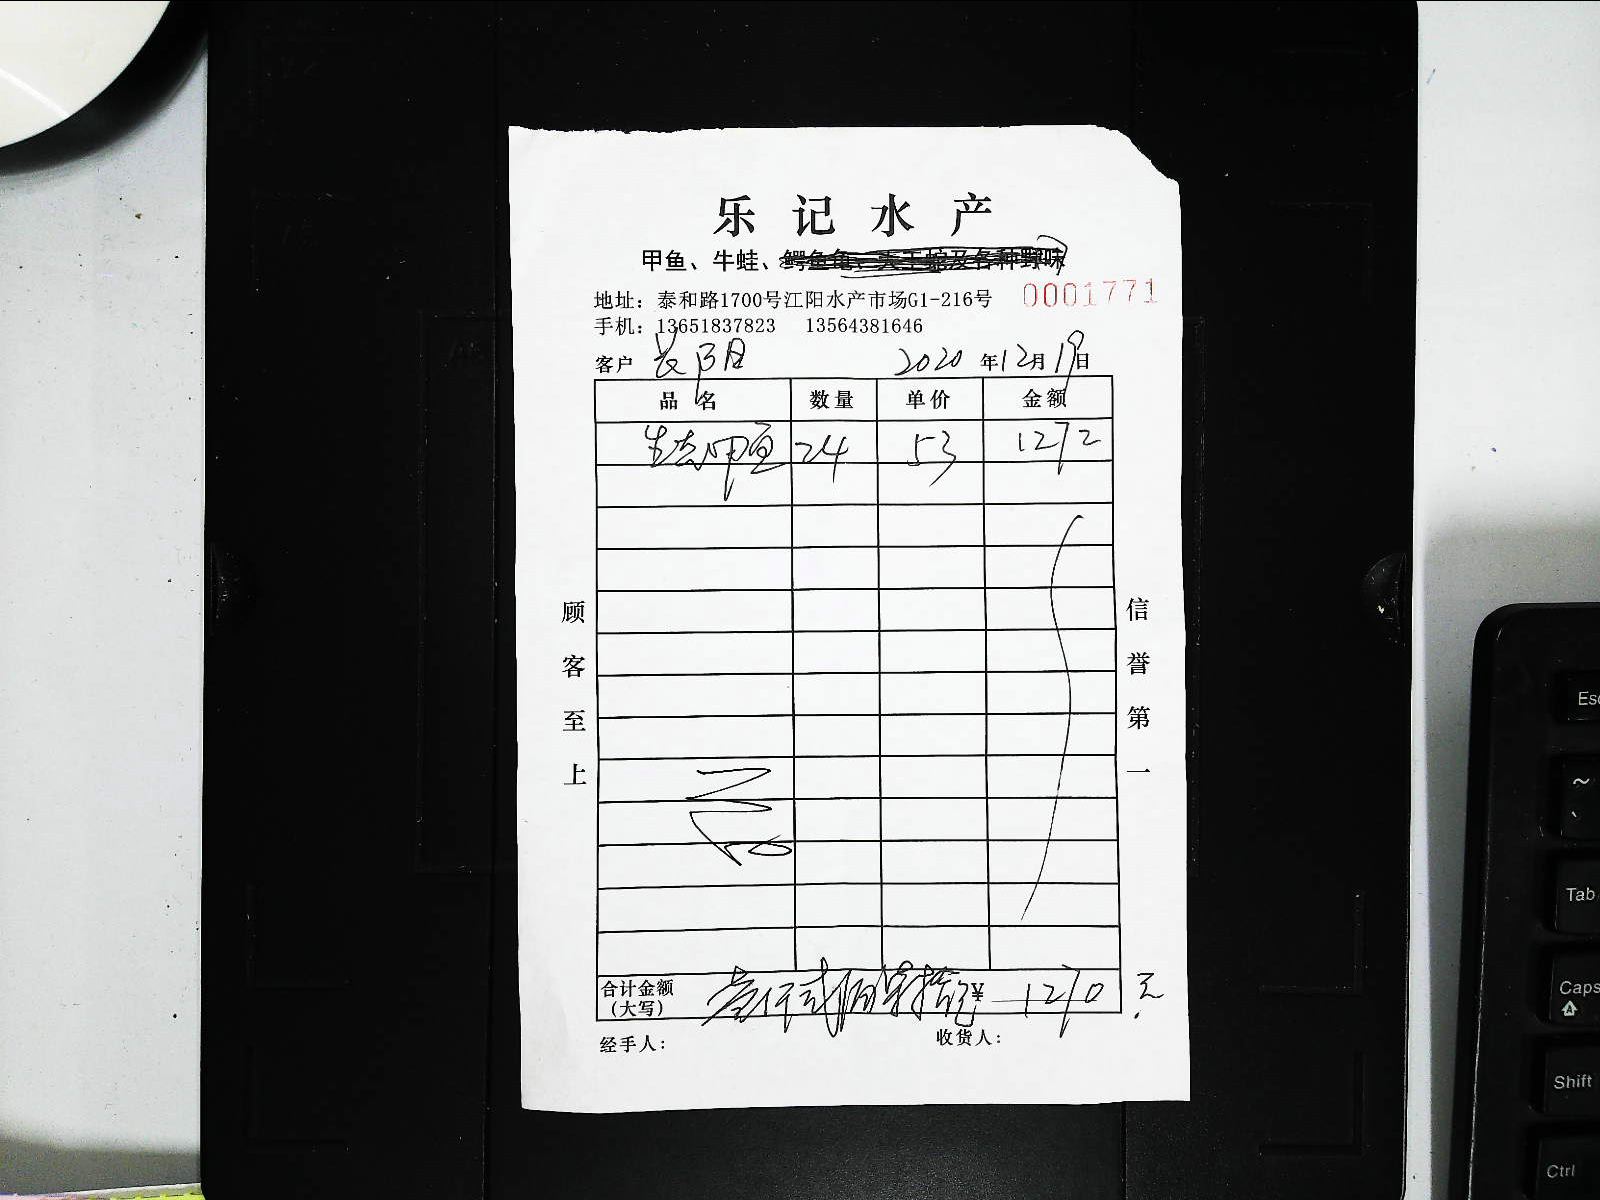 乐记水产
甲鱼、牛蛙、鳄鱼龟、大王蛇及各种野味
地址：泰和路1700号江阳水产市场G1-216号 0001771
手机：13651837823 13564381646
客户 2020 年12月19日
品名 数量 单价 金额
生态甲鱼 24 53 1272
顾客至上
信誉第一
合计金额（大写） 壹仟贰佰柒拾 ¥ 1270 元
经手人： 收货人：
Esc
~
、
Tab
Caps
Shift
Ctrl